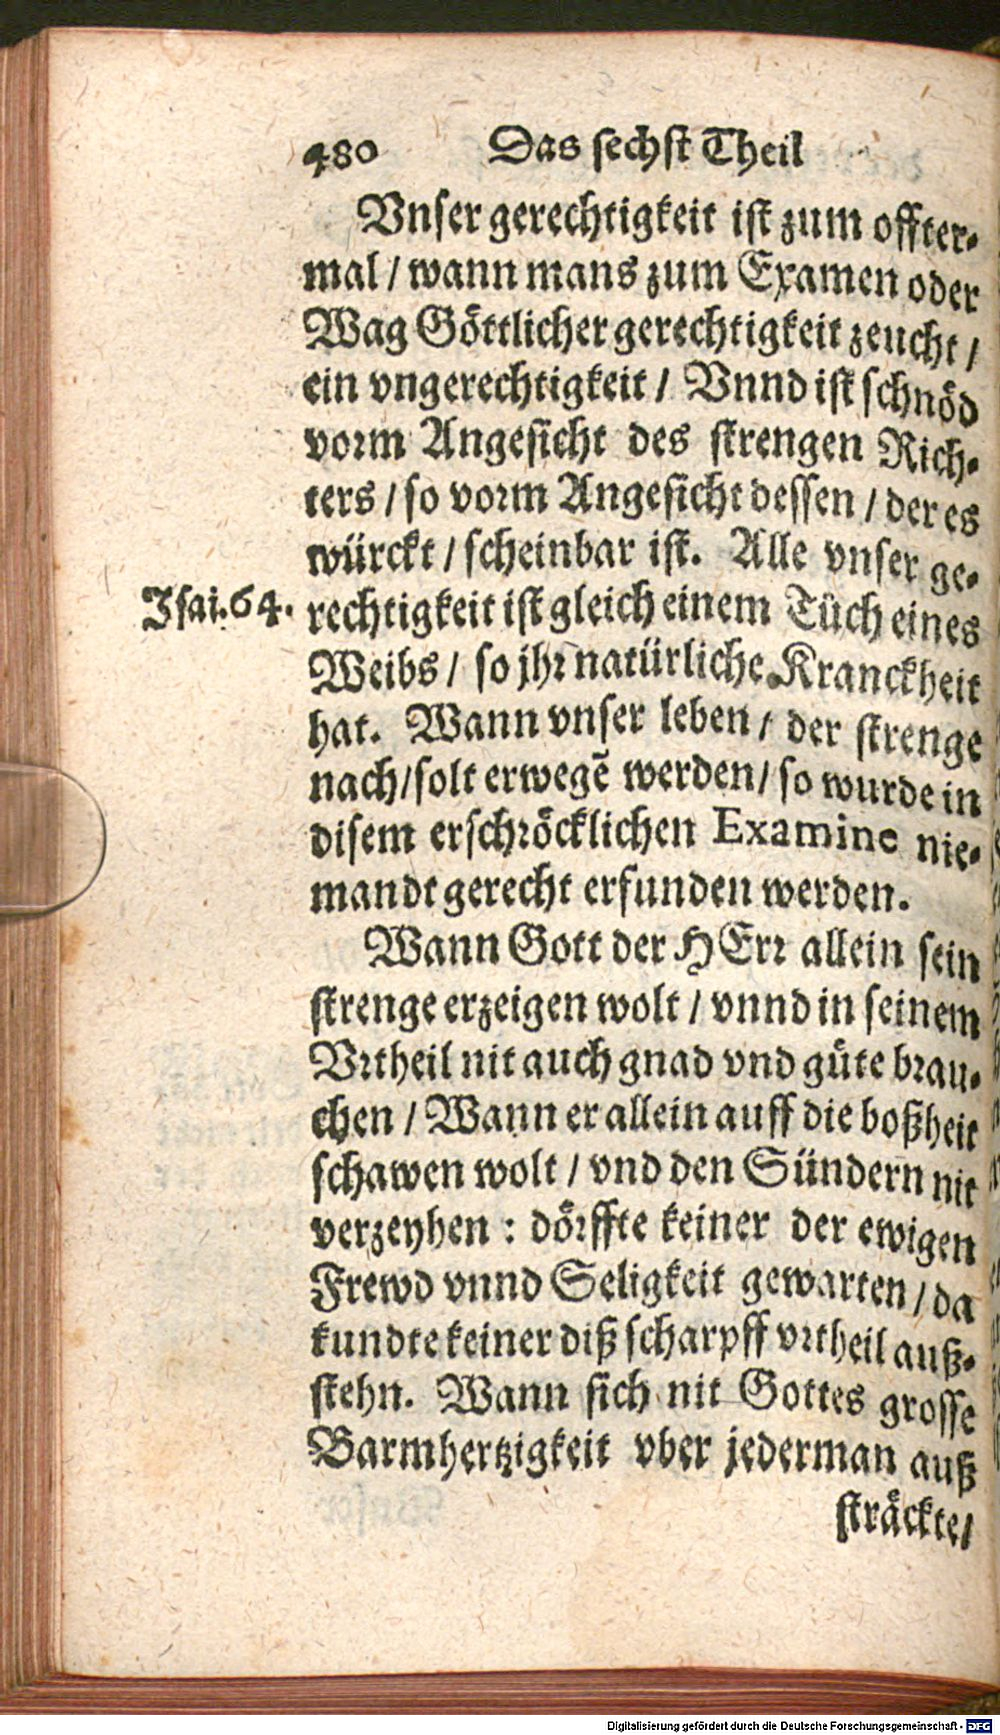 480 Das sechst Theil
Vnser gerechtigkeit ist zum offter-
mal / wann mans zum Examen oder
Wag Göttlicher gerechtigkeit zeucht /
ein vngerechtigkeit / Vnnd ist schnöd
vorm Angesicht des strengen Rich-
ters / so vorm Angesicht dessen / der es
würckt / scheinbar ist. Alle vnser ge-
Isai. 64. rechtigkeit ist gleich einem Tüch eines
Weibs / so jhr natürliche Kranckheit
hat. Wann vnser leben / der strenge
nach / solt erwegẽ werden / so wurde in
disem erschröcklichen Examine nie-
mandt gerecht erfunden werden.
Wann Gott der HErr allein sein
strenge erzeigen wolt / vnnd in seinem
Vrtheil nit auch gnad vnd güte brau-
chen / Wann er allein auff die boßheit
schawen wolt / vnd den Sündern nit
verzeyhen : dörffte keiner der ewigen
Frewd vnnd Seligkeit gewarten / da
kundte keiner diß scharpff vrtheil auß-
stehn. Wann sich nit Gottes grosse
Barmhertzigkeit vber jederman auß
sträckte /
Digitalisierung gefördert durch die Deutsche Forschungsgemeinschaft - DFG